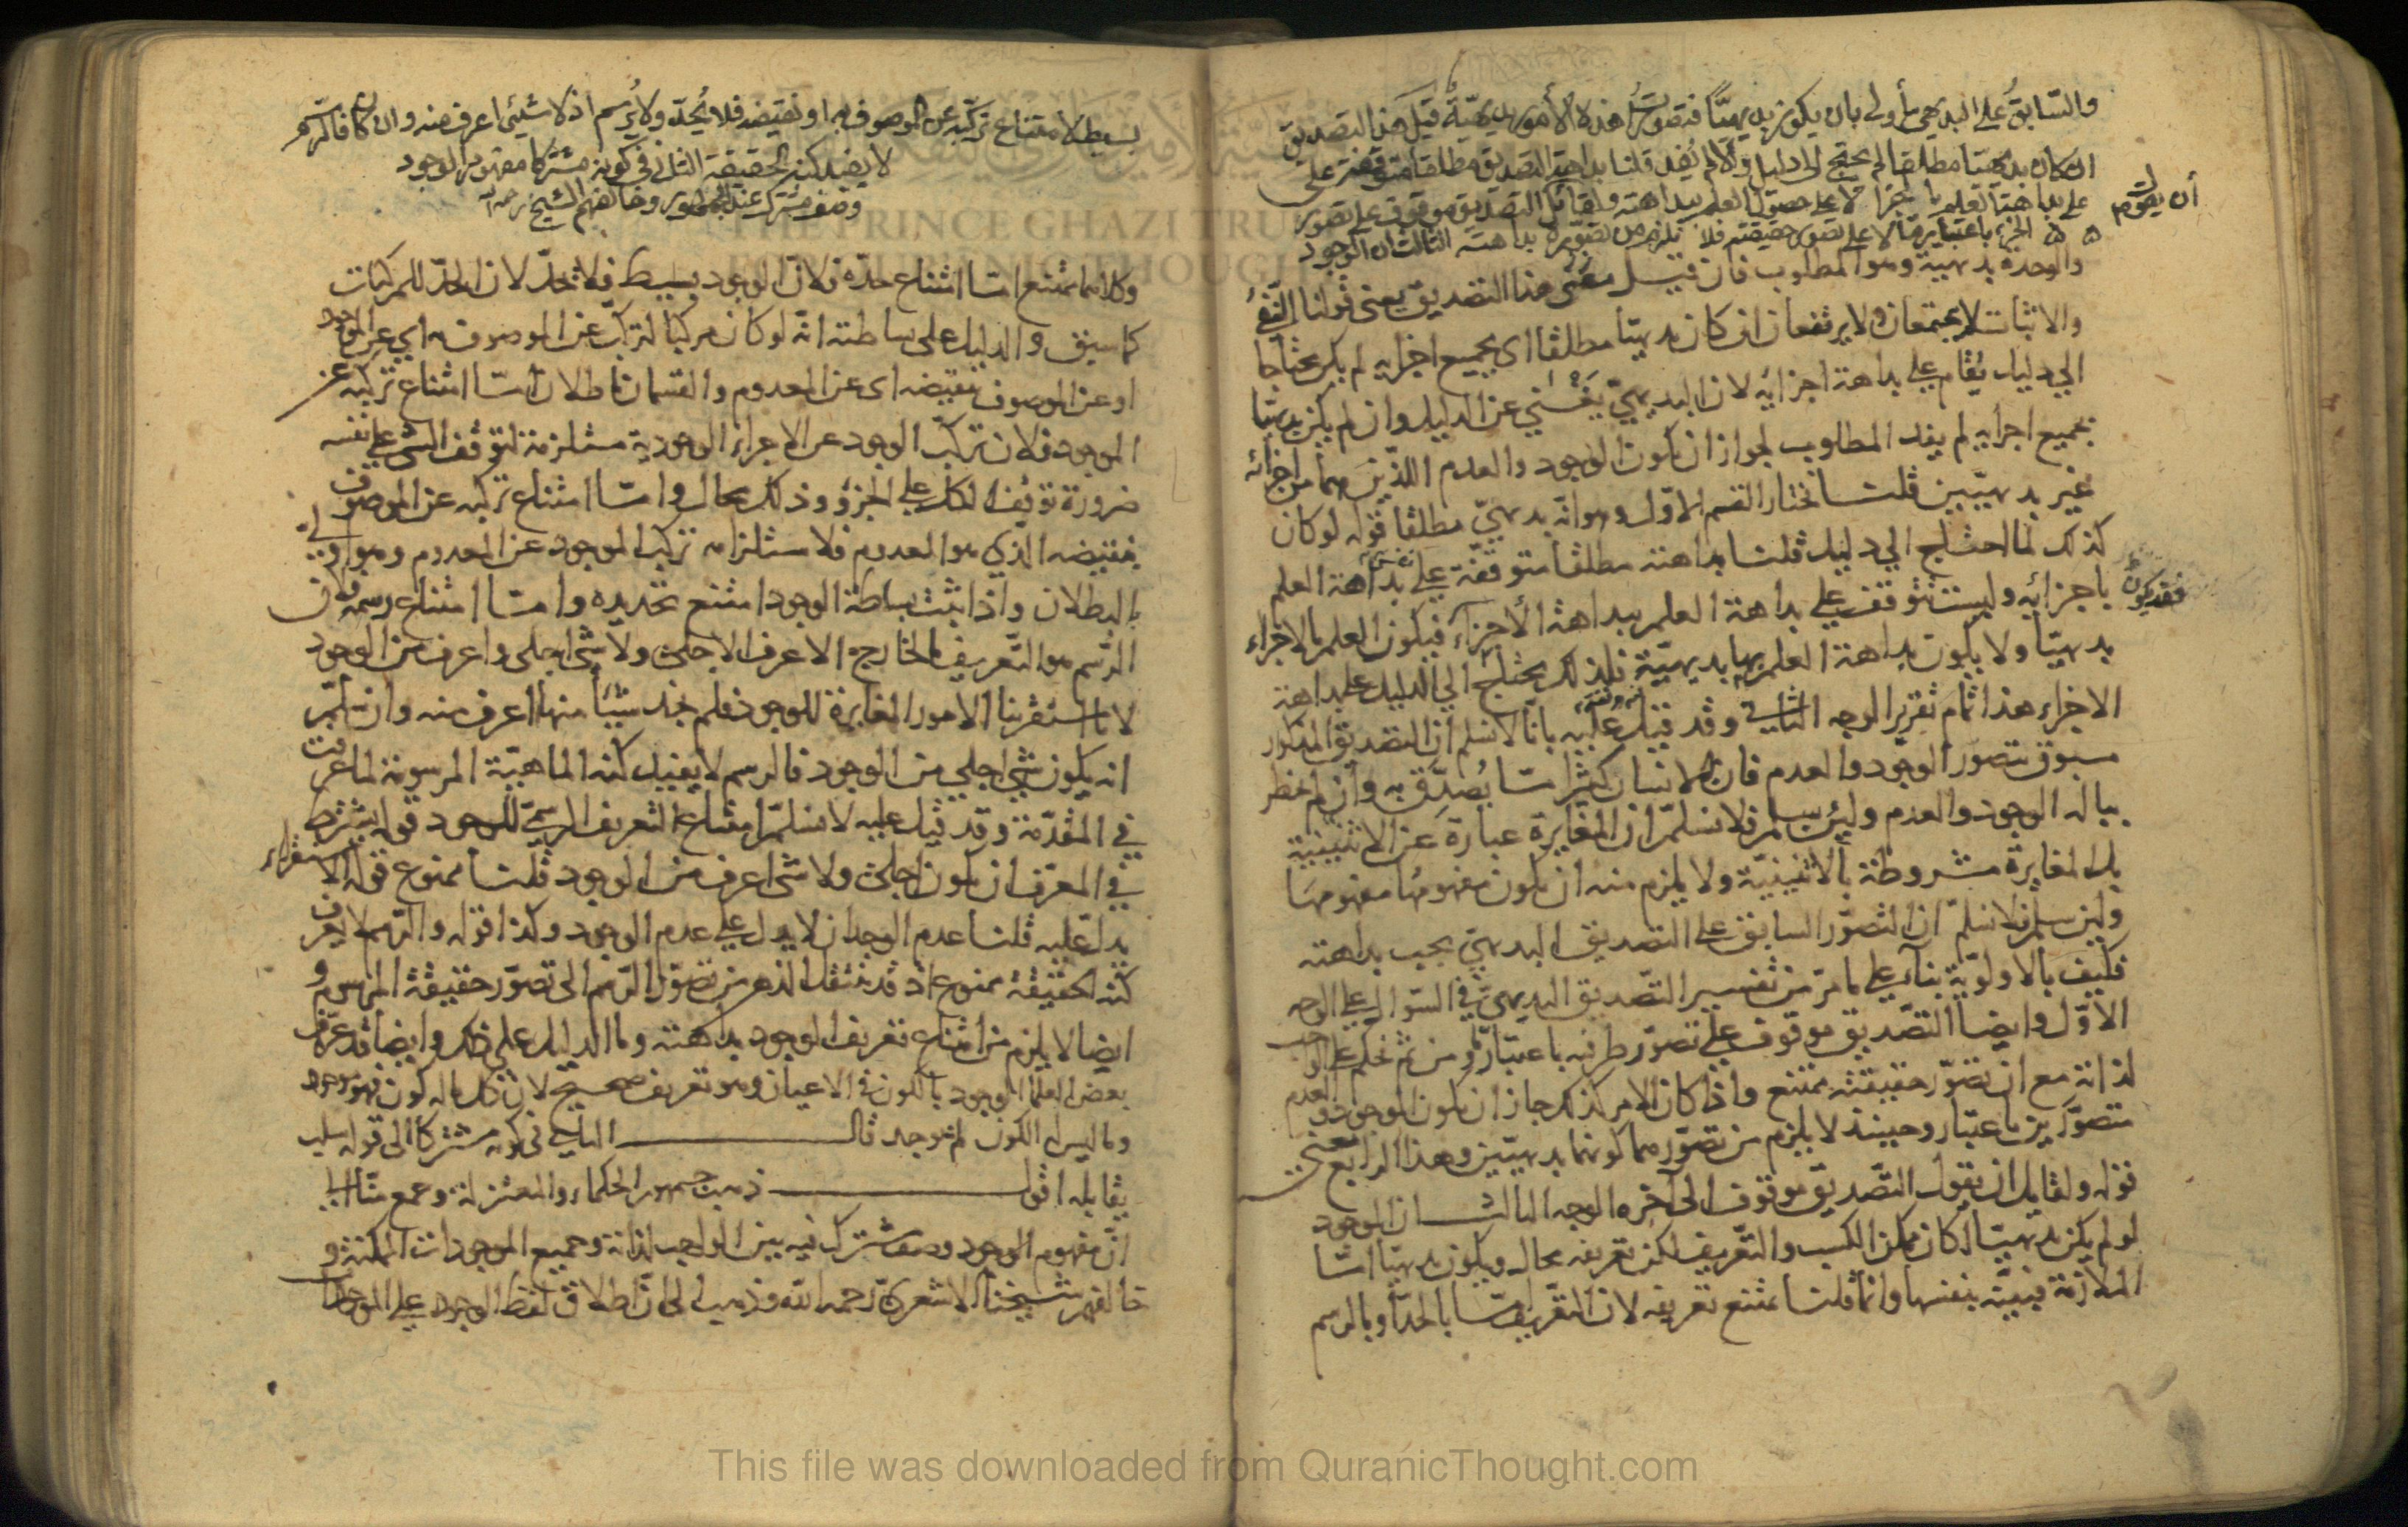 والسابق على البديهي أولى بان يكون بديهيا فتصور هذه الأمور بديهية قيل هذا التصديق
ان كان بديهيا مطلقا لم يحتج الى دليل والا لم يفد قلنا بداهة التصديق مطلقا متوقفة على
بداهة العلم بالجزء لا على حصول العلم ببداهته ولقائل ان يقول التصديق موقوف على تصور
الجزء باعتبار ما لا على تصور حقيقته فلا يلزم من تصوره بداهته الثالث ان الوجود
والوحدة بديهية وهو المطلوب فان قيل معنى هذا التصديق يعنى قولنا النفي
والاثبات لا يجتمعان ولا يرتفعان ان كان بديهيا مطلقا اى بجميع اجزايه لم يكن محتاجا
الي دليل يقام على بداهة اجزائه لان البديهي يغني عن الدليل وان لم يكن بديهيا
بجميع اجزايه لم يفد المطلوب لجواز ان يكون الوجود والعدم اللذين هما من اجزائه
غير بديهيين قلنا نختار القسم الاول وهو انه بديهي مطلقا قوله لو كان
كذلك لما احتاج الي دليل قلنا بداهته مطلقا متوقفة على بداهة العلم
باجزائه وليست تتوقف على بداهة العلم ببداهة الأجزاء فيكون العلم بالاجزاء
فقد يكون
بديهيا ولا يكون بداهة العلم بها بديهية فلذلك يحتاج الي الدليل على بداهة
الاجزاء هذا تمام تقرير الوجه الثاني وقد قيل عليه بانا لا نسلم ان التصديق المذكور
مسبوق بتصور الوجود والعدم فان الانسان كثيرا ما يصدق به وان لم يخطر
بباله الوجود والعدم ولئن سلم فلا نسلم ان المغايرة عبارة عن الاثنينية
بل المغايرة مشروطة بالاثنينية ولا يلزم منه ان يكون مفهومها مفهومها
ولئن سلم فلا نسلم ان التصور السابق على التصديق البديهي يجب بداهته
فكيف بالاولوية بناء على ما مر من تفسير التصديق البديهي في السوال على الوجه
الاول وايضا التصديق موقوف على تصور طرفيه باعتبار ما ومن ثم نحكم على الواجب
لذاته مع ان تصور حقيقته ممتنع واذا كان الامر كذلك جاز ان يكون الوجود والعدم
متصورين باعتبار وحينئذ لا يلزم من تصورهما كونهما بديهيين وهذا الرابع معنى
قوله ولقايل ان يقول التصديق موقوف الى آخره الوجه الثالث ان الوجود
لو لم يكن بديهيا لكان ممكن الكسب والتعريف لكن تعريفه محال ويكون بديهيا اما
الملازمة فبينة بنفسها وانما قلنا يمتنع تعريفه لان التعريف اما بالحد او بالرسم
بسيط لامتناع تركبه عن الموصوف به او نقيضه فلا يحد ولا يرسم اذ لا شيئ اعرف منه وان كان فالرسم
لا يفيد كنه الحقيقة الثاني في كونه مشتركا مفهوم الوجود
وصف مشترك عند الجمهور وخالفهم الشيخ
وكلاهما ممتنع اما امتناع حده فلان الوجود بسيط فلا يحد لان الحد للمركبات
كما سبق والدليل على بساطته انه لو كان مركبا لتركب عن الموصوف به اى عن الموجود
او عن الموصوف بنقيضه اى عن المعدوم والقسمان باطلان اما امتناع تركبه عن
الموجود فلان تركب الوجود عن الاجزاء الوجودية مستلزمة لتوقف الشي على نفسه
ضرورة توقف الكل على الجزؤ وذلك محال واما امتناع تركبه عن الموصوف
بنقيضه الذي هو العدوم فلاستلزامه تركب الموجود عن المعدوم وهو اولى
بالبطلان واذا ثبت بساطة الوجود امتنع تحديده واما امتناع رسمه فلان
الرسم هو التعريف بالخارج الاعرف الاجلى ولا شى اجلى واعرف من الوجود
لانا استقرينا الامور المغايرة للوجود فلم نجد شيئا منها اعرف منه وان سلم
انه يكون شي اجلي من الوجود فالرسم لا يفيد كنه الماهية المرسومة لما عرفت
في المقدمة وقد قيل عليه لا نسلم امتناع التعريف الرسمي للوجود قوله يشترط
في المعرف ان يكون اجلى ولا شى اعرف من الوجود قلنا ممنوع قوله الاستقراء
يدل عليه قلنا عدم الوجدان لا يدل على عدم الوجود وكذا قوله والرسم لا يعرف
كنه الحقيقة ممنوع اذ قد ينتقل الذهن من تصور الرسم الى تصور حقيقة المرسوم و
ايضا لا يلزم من امتناع تعريف الوجود بداهته وما الدليل على ذلك وايضا قد عرف
بعض العلما الوجود بالكون في الاعيان وهو تعريف صحيح لان كل ما له كون فهو موجود
وما ليس له الكون لم يوجد قال الثاني في كونه مشتركا الى قوله سلب
يقابله اقول ذهب جمهور الحكماء والمعتزلة وجمع منا الى
ان مفهوم الوجود وصف مشترك فيه بين الواجب لذاته وجميع الموجودات الممكنة و
خالفهم شيخنا الاشعرى رحمه الله وذهب الى ان اطلاق لفظ الوجود على الموجودات
This file was downloaded from QuranicThought.com